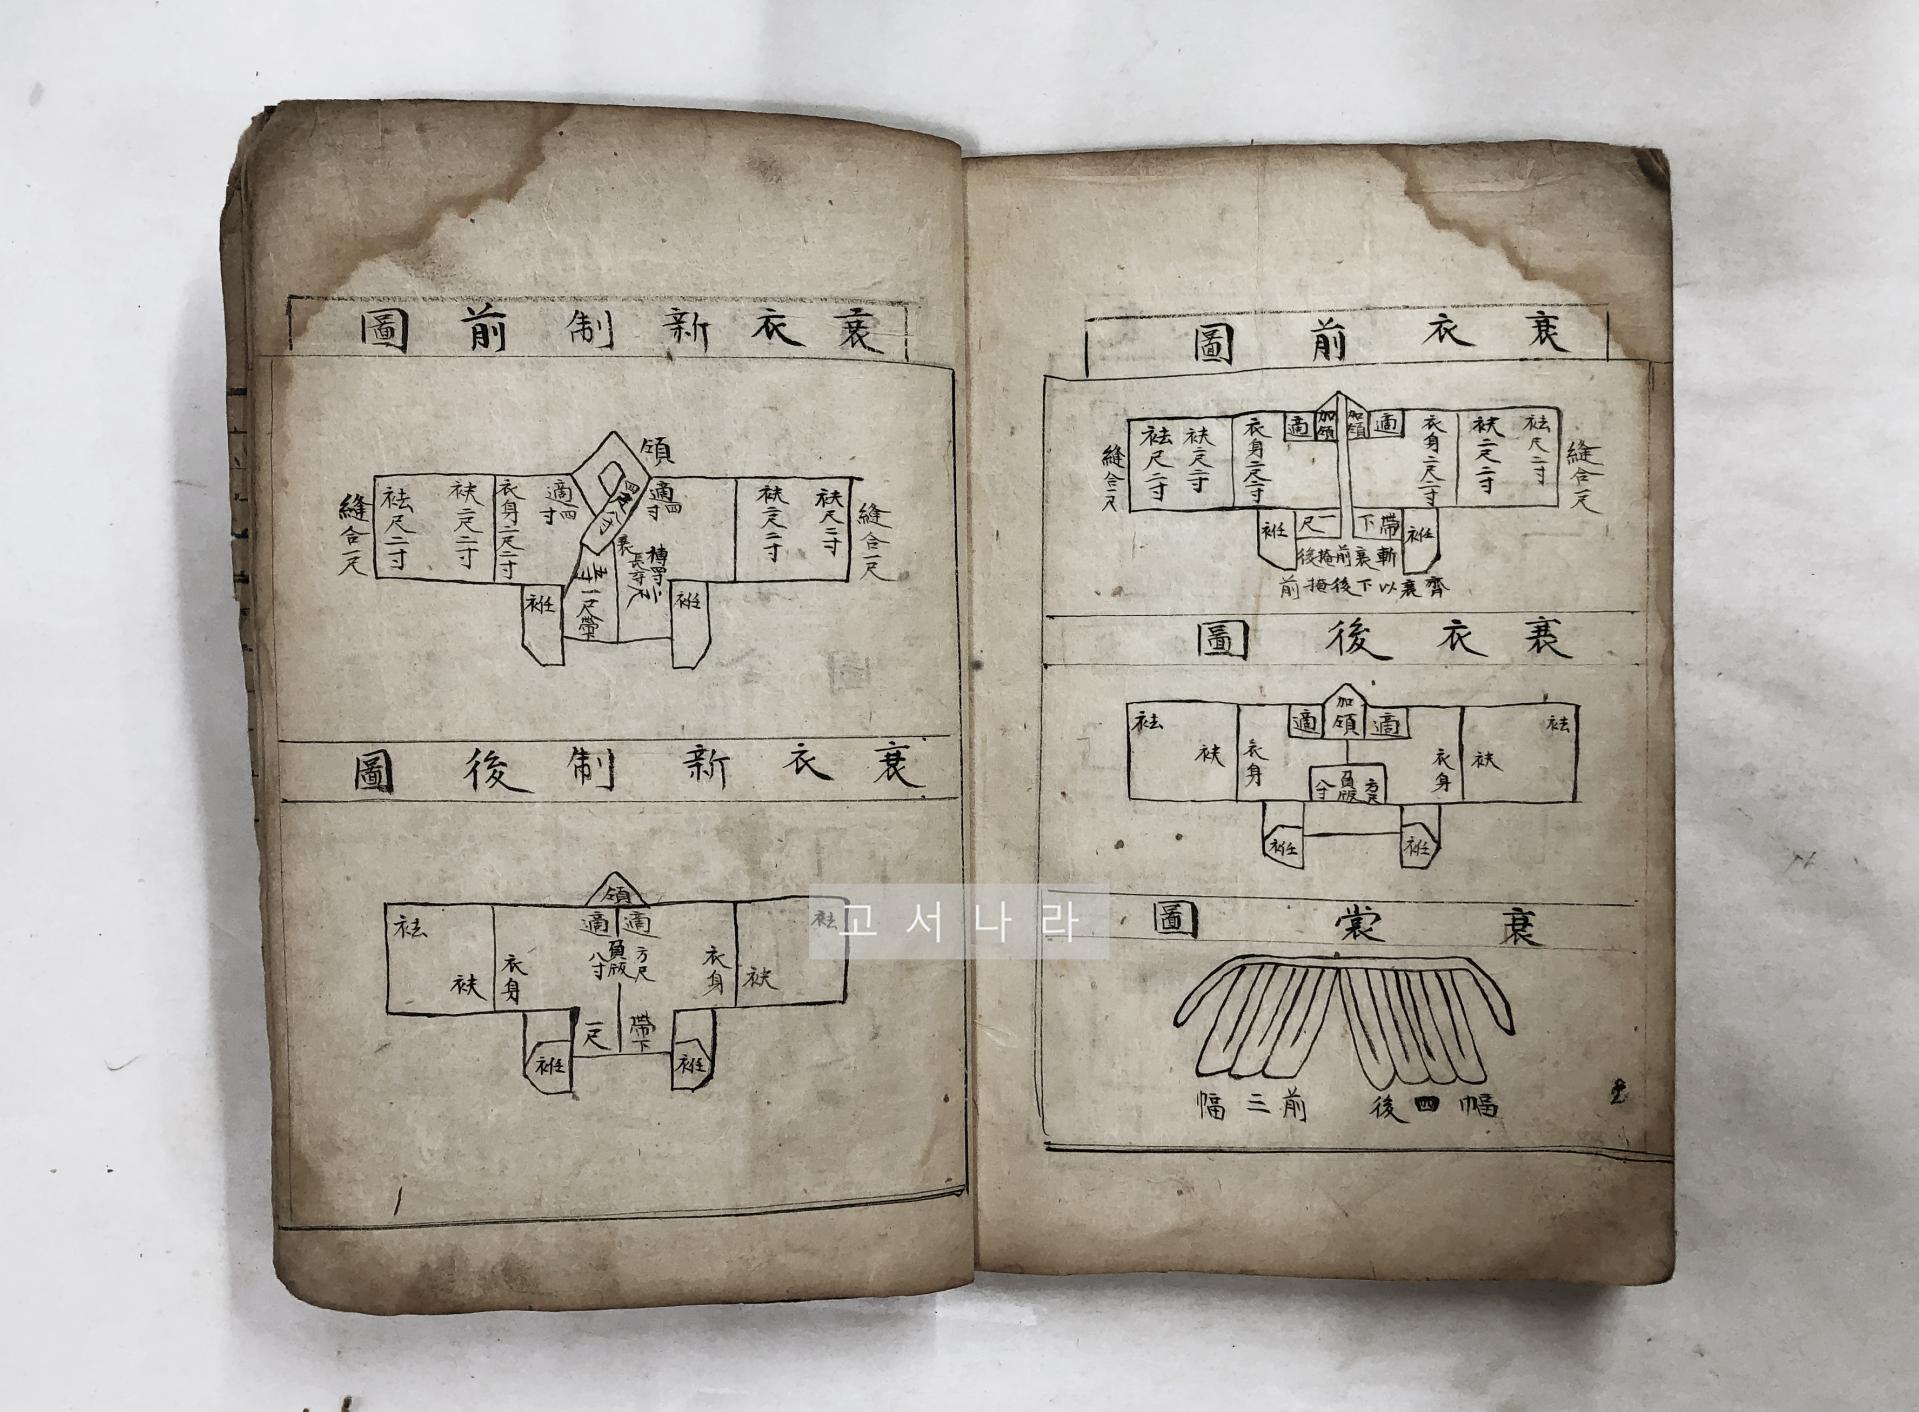 衰衣前圖
縫合一尺
袪尺二寸
袂二尺二寸
衣身二尺二寸
適
加領
加領
適
衣身二尺二寸
袂二尺二寸
袪尺二寸
縫合一尺
衽
帶下
一尺
衽
斬衰前掩後
齊衰以下後掩前
衰衣後圖
袪
袂
衣身
適
加領
適
衣身
袂
袪
方尺
負版
八寸
衽
衽
衰裳圖
前三幅
後四幅
衰衣新制前圖
領
縫合一尺
袂尺二寸
袂二尺二寸
適四寸
適四寸
衣身二尺二寸
袂二尺二寸
袪尺二寸
縫合一尺
衰
長
衽
一尺帶下
衽
衰衣新制後圖
領
袪
袂
衣身
適
適
方尺
負版
八寸
衣身
袂
袪
衽
帶下
一尺
衽
고서나라